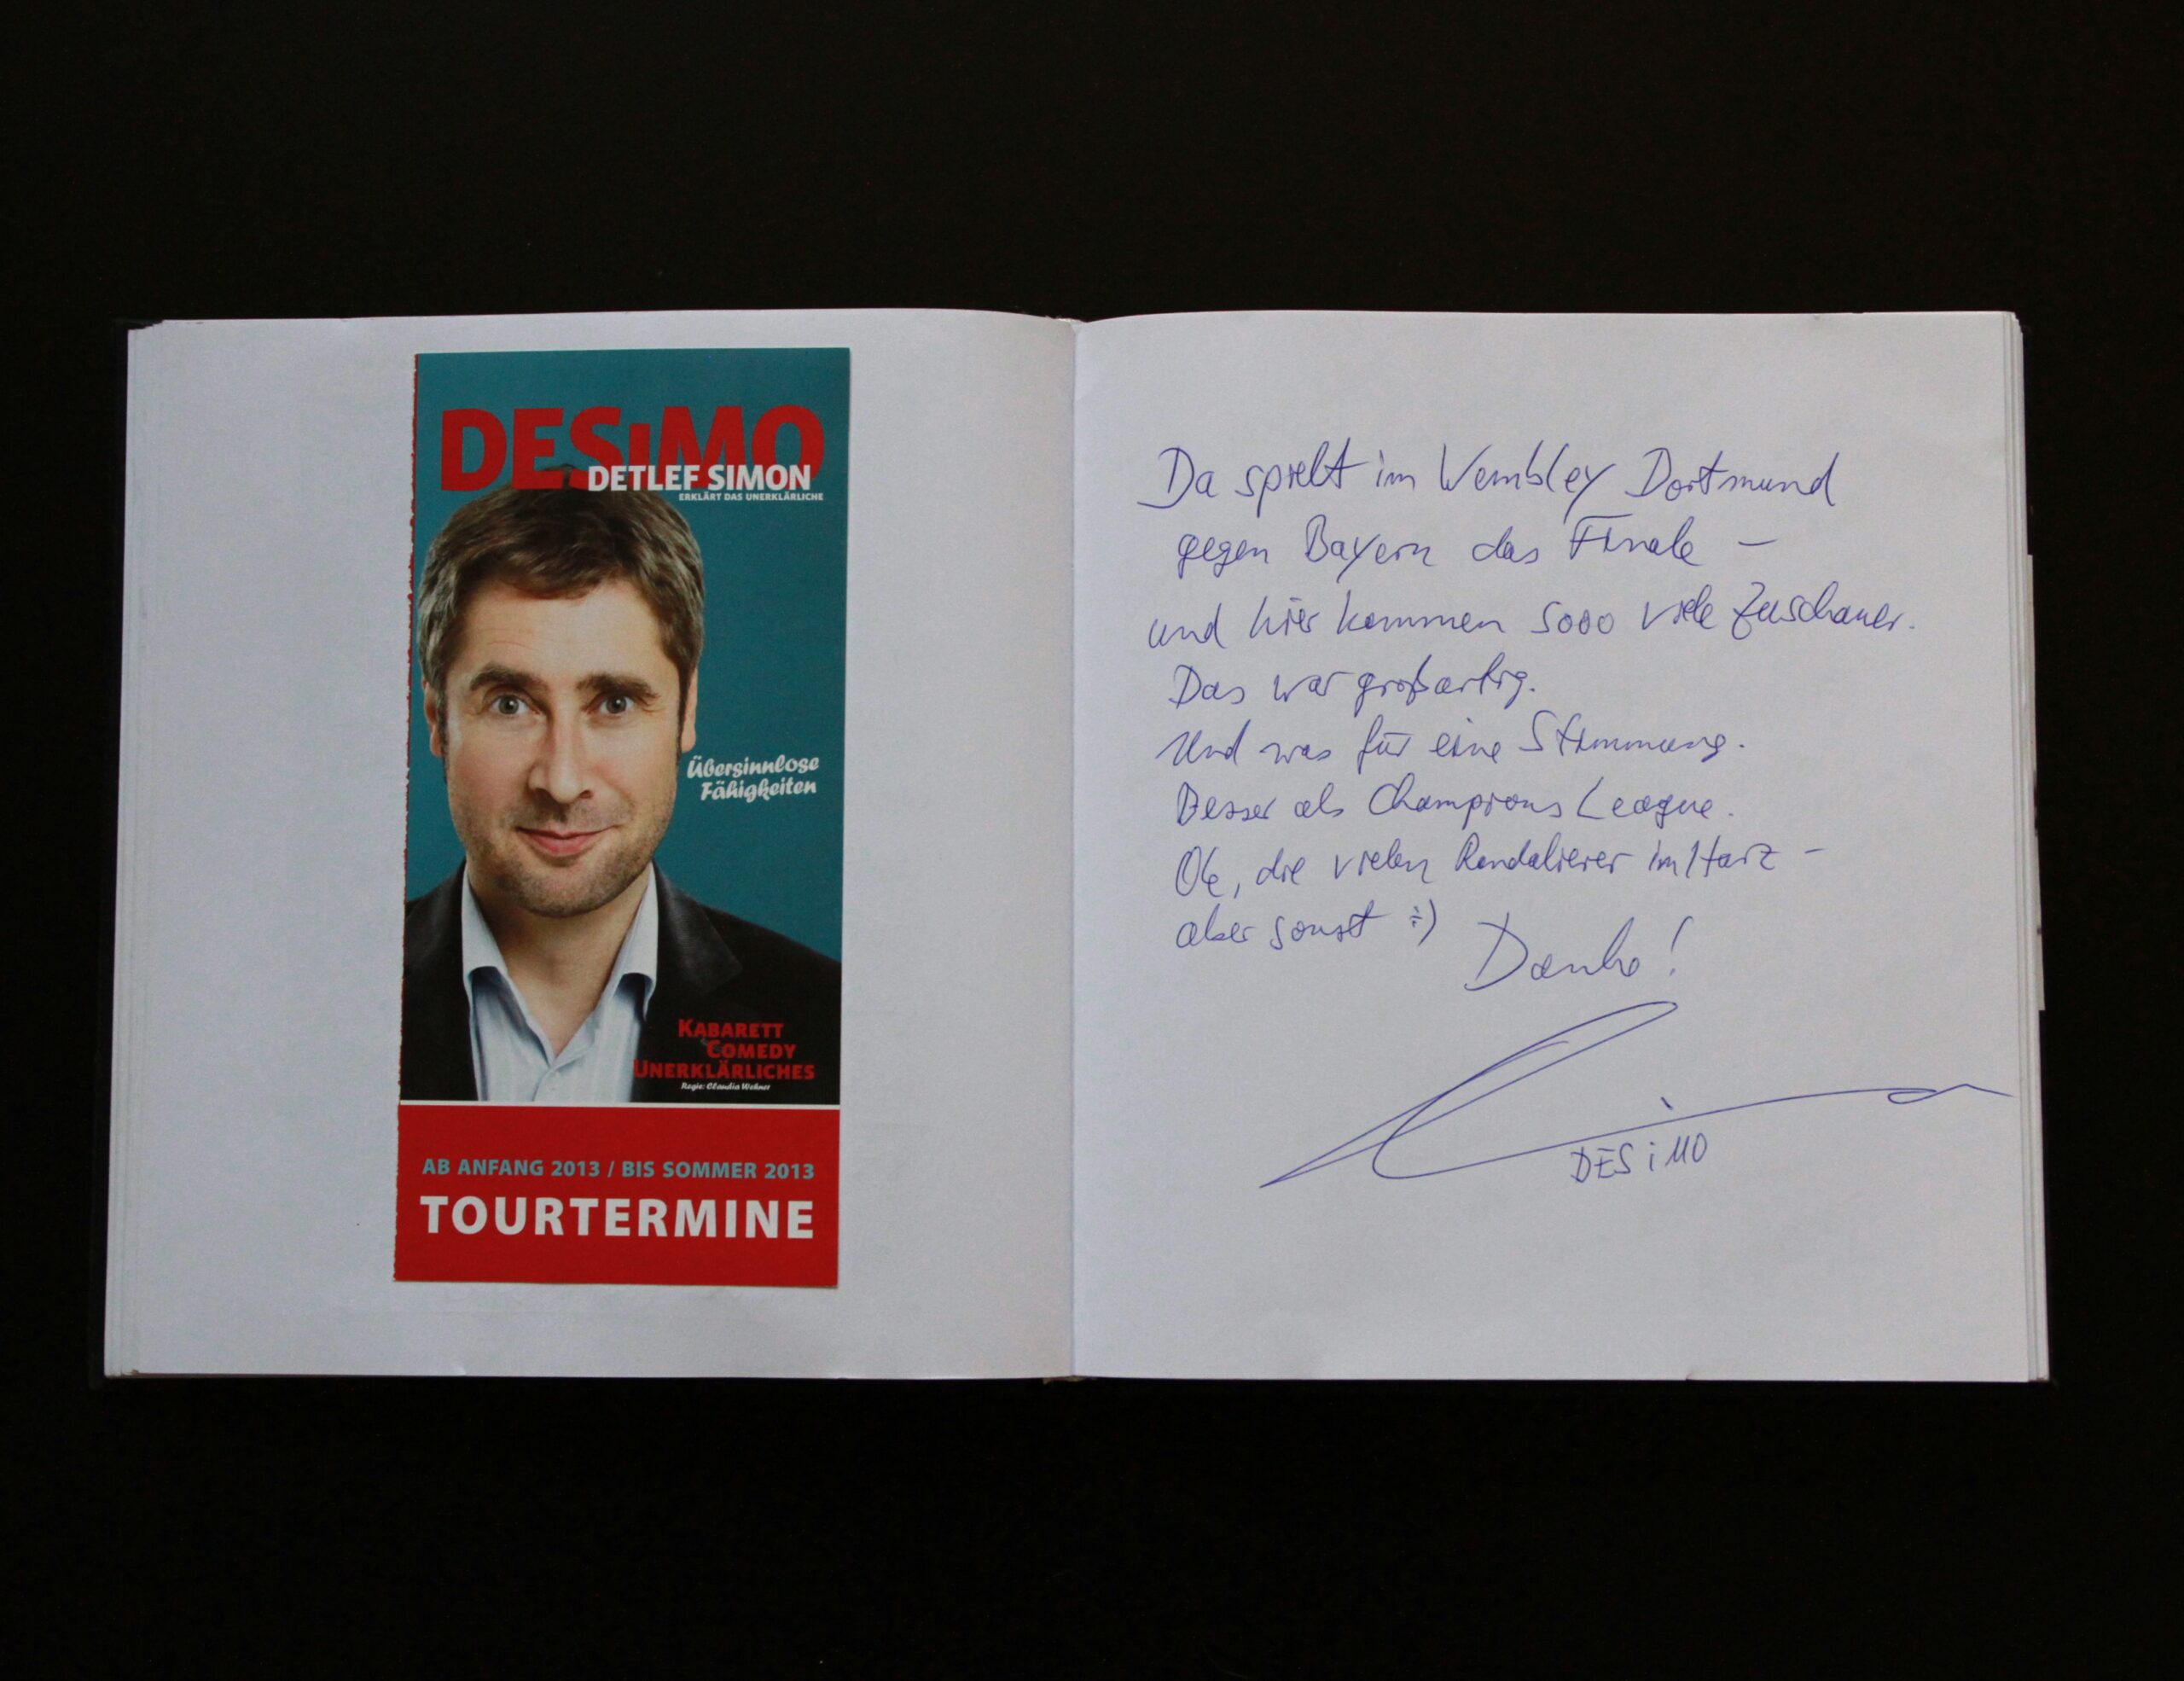 DESiMO
DETLEF SIMON
ERKLÄRT DAS UNERKLÄRLICHE
Übersinnlose
Fähigkeiten
KABARETT
COMEDY
UNERKLÄRLICHES
Regie: Claudia Wehner
AB ANFANG 2013 / BIS SOMMER 2013
TOURTERMINE
Da spielt im Wembley Dortmund
gegen Bayern das Finale –
und hier kommen sooo viele Zuschauer.
Das war großartig.
Und was für eine Stimmung.
Besser als Champions League.
Ok, die vielen Randalierer im Harz –
aber sonst :)
Danke!
DESiMO